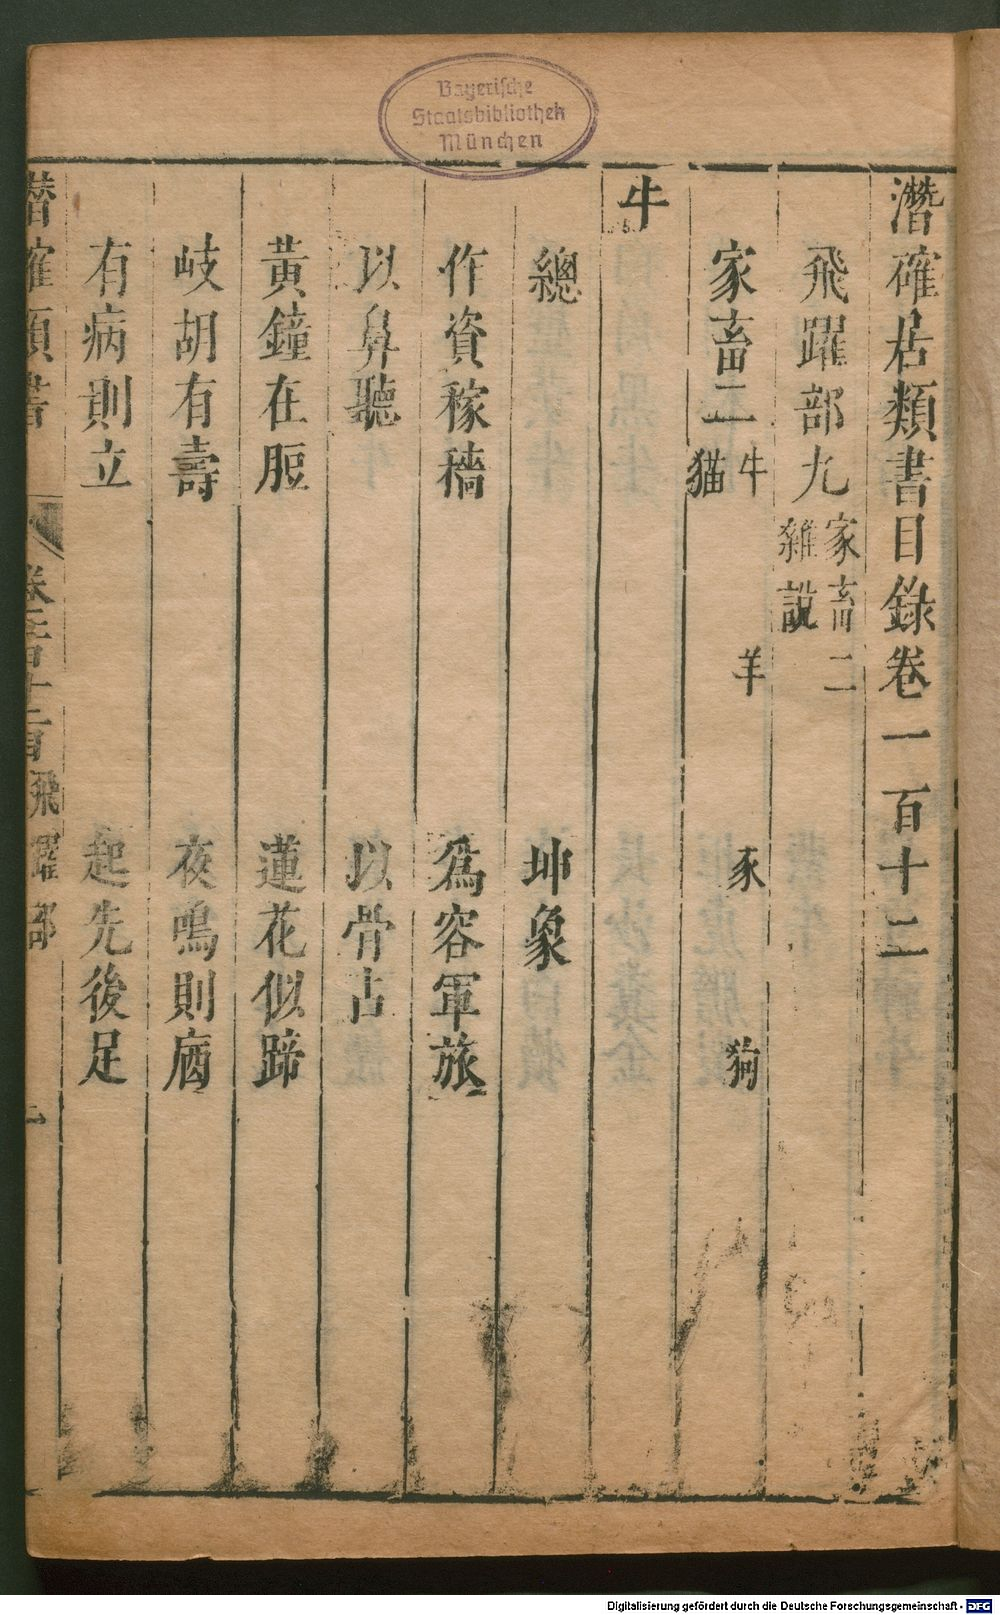 Bayerische
Staatsbibliothek
München
潛確居類書目錄卷一百十二
飛躍部九 家畜二 雜說
家畜二 牛 羊 豕 狗 猫
牛
總 坤象
作資稼穡 爲容軍旅
以鼻聽 以骨占
黃鐘在脰 蓮花似蹄
岐胡有壽 夜鳴則庮
有病則立 起先後足
潛確類書 卷一百十二目 飛躍部 一
Digitalisierung gefördert durch die Deutsche Forschungsgemeinschaft - DFG